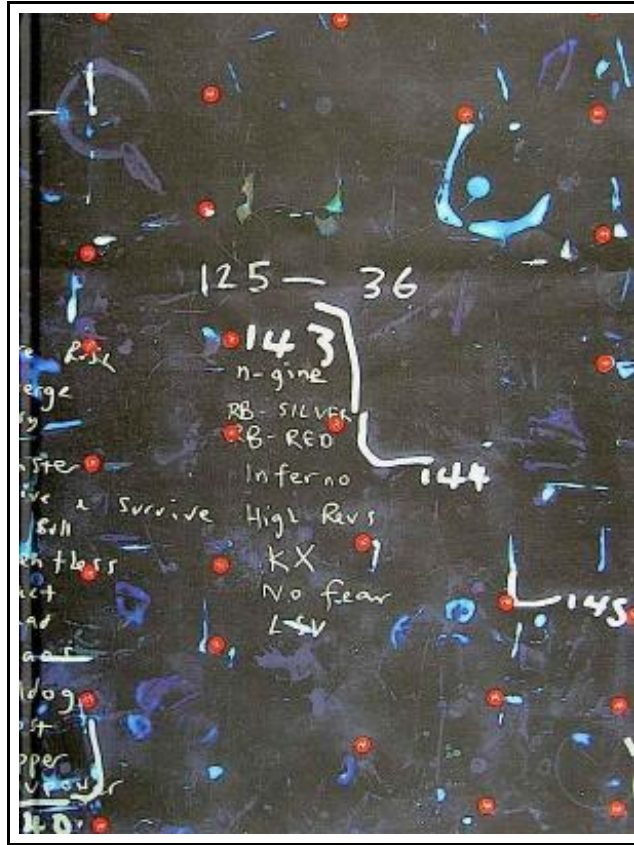 125 — 36
143
n-gine
RB-SILVER
RB-RED
Inferno
High Revs
KX
No fear
LSV
144
145
Risk
erge
ster
ive & Survive
Bull
entless
act
ad
aos
dog
ost
pper
upower
40